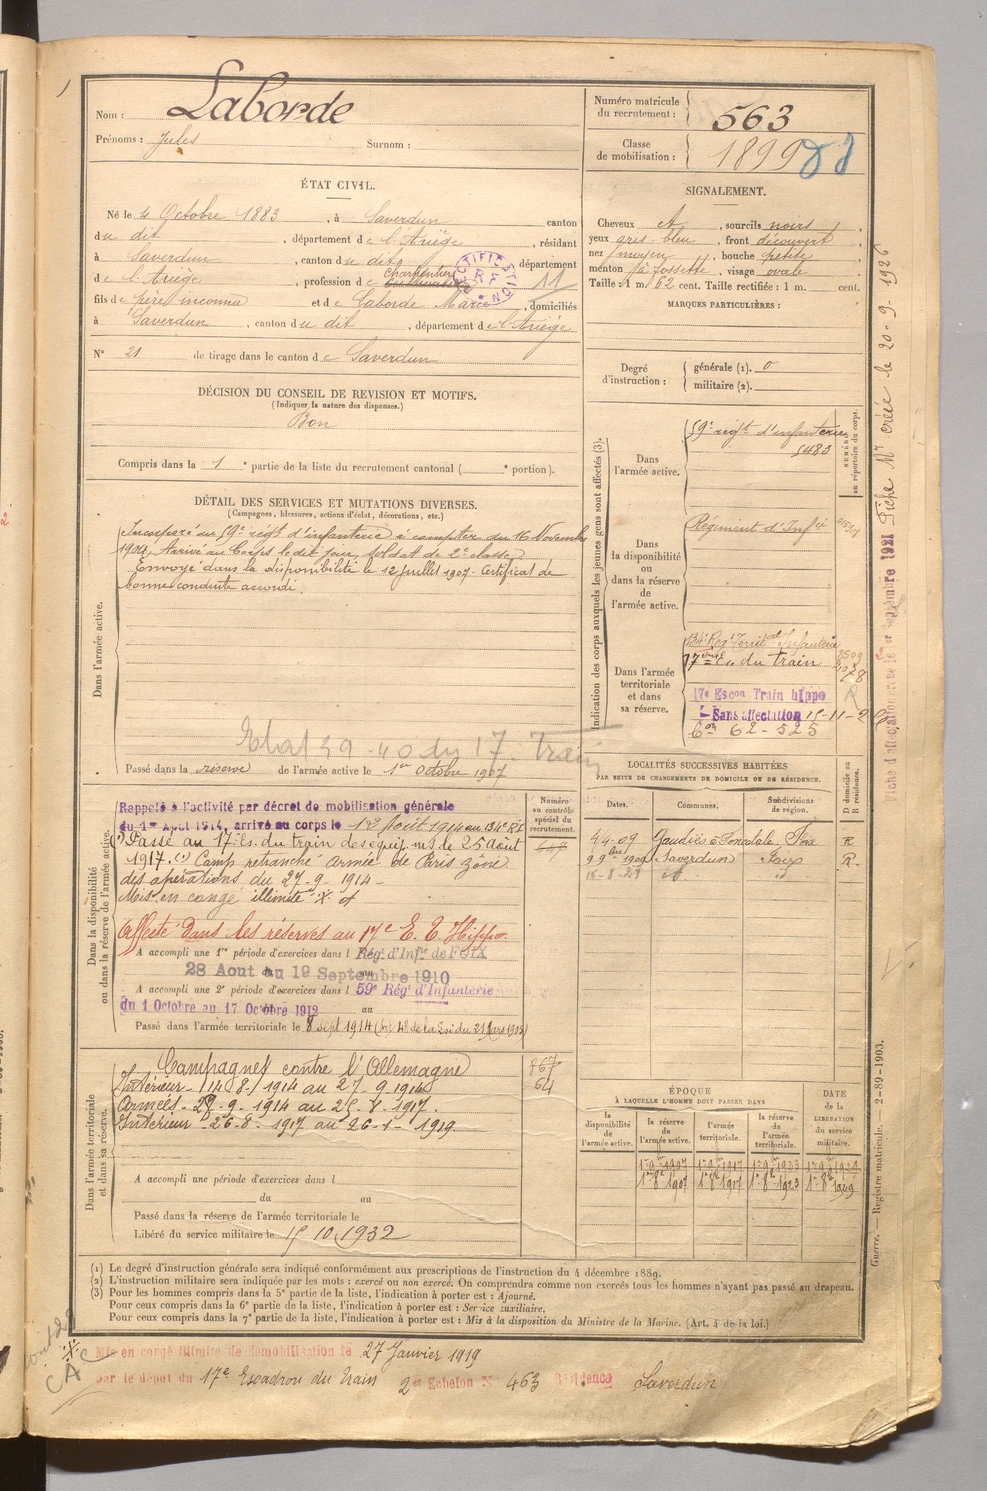 Nom : Laborde
Prénoms : Jules Surnom :
Numéro matricule
du recrutement : 563
Classe
de mobilisation : 1899
ÉTAT CIVIL.
Né le 4 Octobre 1883, à Saverdun canton
du dit, département de l'Ariège, résidant
à Saverdun, canton du dit, département
de l'Ariège, profession de Charpentier
11
fils de père inconnu et de Laborde Marie, domiciliés
à Saverdun, canton du dit, département de l'Ariège
N° 21 de tirage dans le canton de Saverdun
SIGNALEMENT.
Cheveux et, sourcils noirs
yeux gris-bleu, front découvert
nez moyen, bouche petite
menton à fossette, visage ovale
Taille : 1 m. 62 cent. Taille rectifiée : 1 m. cent.
MARQUES PARTICULIÈRES :
Degré
d'instruction :
générale (1). 0
militaire (2).
DÉCISION DU CONSEIL DE REVISION ET MOTIFS.
(Indiquer la nature des dispenses.)
Bon
Compris dans la 1e partie de la liste du recrutement cantonal ( e portion).
DÉTAIL DES SERVICES ET MUTATIONS DIVERSES.
(Campagnes, blessures, actions d'éclat, décorations, etc.)
Dans l'armée active.
Incorporé au 59e régt d'infanterie à compter du 16 Novembre
1904, Arrivé au Corps le dit jour, soldat de 2e classe,
Envoyé dans la disponibilité le 12 Juillet 1907. Certificat de
bonne conduite accordé.
Etat 39-40 du 17 Train
Passé dans la réserve de l'armée active le 1er Octobre 1907
Indication des corps auxquels les jeunes gens sont affectés (3).
NUMÉRO
au répertoire du corps.
Dans
l'armée active.
59e régt d'infanterie
5483
Dans
la disponibilité
ou
dans la réserve
de
l'armée active.
Régiment d'Infie
Dans l'armée
territoriale
et dans
sa réserve.
134e Reg Territ d'Infanterie
17e Esc. du train
17e Escon Train hippo
Sans affectation 15-11-26
Con 62-525
Fiche d'affectation créée le 1er Septembre 1921 Fiche Mle créée le 20-9-1926
LOCALITÉS SUCCESSIVES HABITÉES
PAR SUITE DE CHANGEMENTS DE DOMICILE OU DE RÉSIDENCE.
Dates. Communes. Subdivisions
de région. D domicile ou
R résidence.
4-4-09 Gaudiès R
1909 Saverdun Foix R.
16-8-27 do
Dans la disponibilité
ou dans la réserve de l'armée active.
Numéro
au contrôle
spécial du
recrutement.
Rappelé à l'activité par décret de mobilisation générale
du 1er Août 1914, arrivé au corps le 12 Août 1914 au 134e RI
(1) Passé au 17e Es. du train des équip. mts le 25 Août
1917. (1) Camp retranché armée de Paris zône
des opérations du 27-9-1914-
Mis en congé illimité
Affecté dans les réserves au 17e E. T. Hippo.
A accompli une 1re période d'exercices dans l Régt d'Infie de FOIX
28 Aout au 19 Septembre 1910
A accompli une 2e période d'exercices dans l 59e Régt d'Infanterie
du 1 Octobre au 17 Octobre 1912
Passé dans l'armée territoriale le 8 sept 1914
Dans l'armée territoriale
et dans sa réserve.
867
64
Campagnes contre l'Allemagne
Intérieur - 14-8-1914 au 27-9-1914
Armées - 28-9-1914 au 25-8-1917.
Intérieur - 26-8-1917 au 26-1-1919.
A accompli une période d'exercices dans l
du au
Passé dans la réserve de l'armée territoriale le
Libéré du service militaire le 15 10 1932
ÉPOQUE
À LAQUELLE L'HOMME DOIT PASSER DANS
la
disponibilité
de
l'armée active.
la réserve
de
l'armée active.
l'armée
territoriale.
la réserve
de
l'armée
territoriale.
DATE
de la
LIBÉRATION
du service
militaire.
Guerre. — Registre matricule. — 2-89-1903.
(1) Le degré d'instruction générale sera indiqué conformément aux prescriptions de l'instruction du 4 décembre 1889.
(2) L'instruction militaire sera indiquée par les mots : exercé ou non exercé. On comprendra comme non exercés tous les hommes n'ayant pas passé au drapeau.
(3) Pour les hommes compris dans la 5e partie de la liste, l'indication à porter est : Ajourné.
Pour ceux compris dans la 6e partie de la liste, l'indication à porter est : Service auxiliaire.
Pour ceux compris dans la 7e partie de la liste, l'indication à porter est : Mis à la disposition du Ministre de la Marine. (Art. 4 de la loi.)
Mis en congé illimité de démobilisation le 27 Janvier 1919
par le dépot du 17e Escadron du Train 2er Echelon N° 463 Résidence Saverdun
CAC